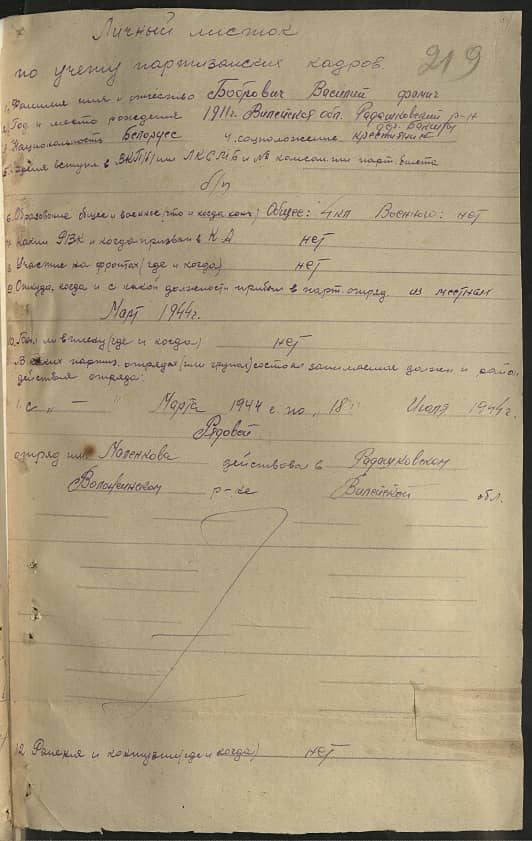 Личный листок
219
по учету партизанских кадров.
1. Фамилия имя и отчество Бобрович Василий фомич
2. Год и место рождения 1911г. Вилейская обл. Радошковский р-н
дер.
3. Национальность Белорусс 4. соцположение крестьянин
5. Время вступл в ВКП/б/ или ЛКСМБ и № комсом. или парт. билета
б/п
6. Образование общее и военное/что и когда конч/ Общее: 4кл Военного: нет
7. каким РВК и когда призван в К А нет
8. Участие на фронтах/где и когда/ нет
9. Откуда, когда и с какой должности прибыл в парт. отряд. из местных
Март 1944г.
10. Был ли в плену/где и когда/ нет
11. В каких партиз. отрядах/или групах/состоял занимаемая должн и район
действия отряда:
1. С " — " Марта 1944 г. по "18" Июля 1944г.
Рядовой
отряд им. Маленкова действовал в Радошковском
Воложинском р-не Вилейской обл.
12. Ранения и контузии/где и когда/ нет